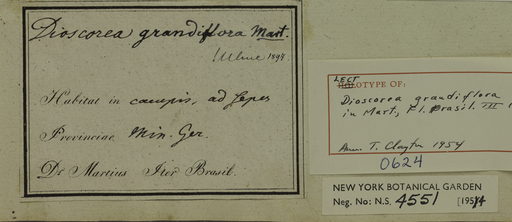 Dioscorea grandiflora Mart.
Uline 1894
Habitat in campis, ad sepes
Provinciae Min. Ger.
Dr Martius Iter Brasil.
LECT
HOLOTYPE OF:
Dioscorea grandiflora
in Mart, Fl. Brasil. III
T. Clayton 1954
0624
NEW YORK BOTANICAL GARDEN
Neg. No: N.S. 4551 [1954